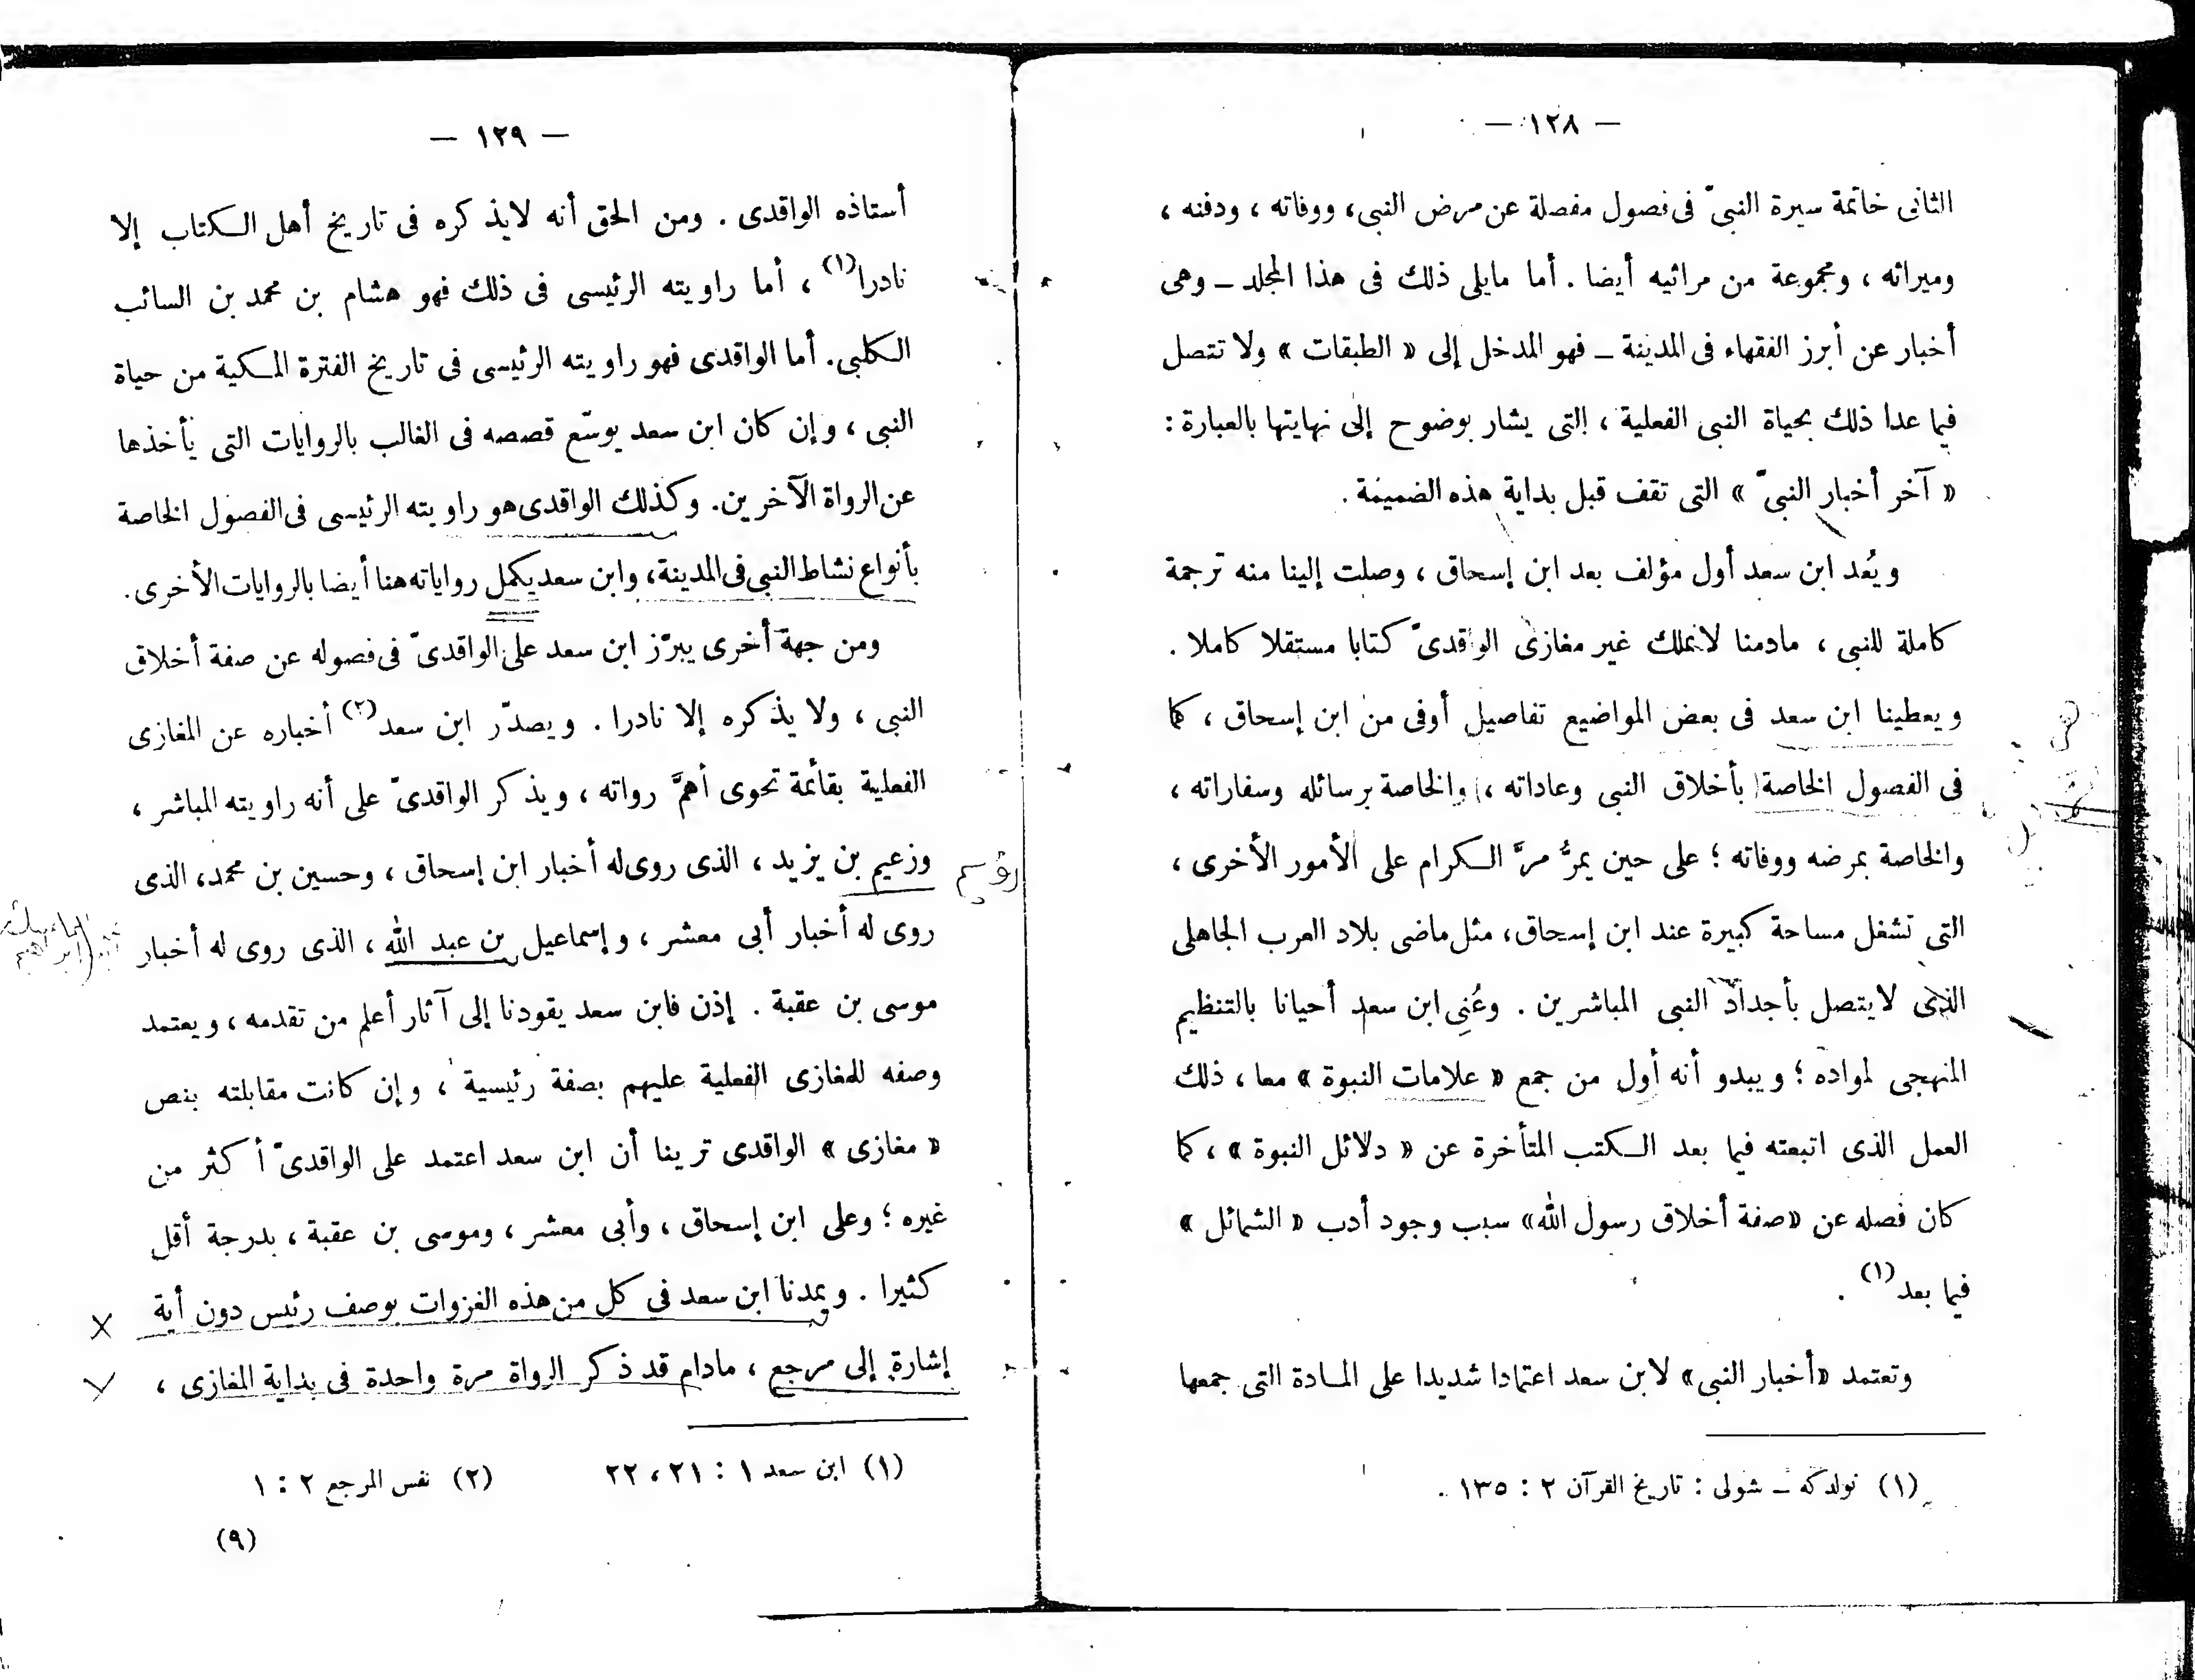 — ١٢٨ —
الثانى خاتمة سيرة النبىّ فى فصول مفصلة عن مرض النبى، ووفاته ، ودفنه ،
وميراثه ، ومجموعة من مراثيه أيضا . أما مايلى ذلك فى هذا المجلد ـ وهى
أخبار عن أبرز الفقهاء فى المدينة ـ فهو المدخل إلى « الطبقات » ولا تتصل
فيما عدا ذلك بحياة النبى الفعلية ، التى يشار بوضوح إلى نهايتها بالعبارة :
« آخر أخبار النبىّ » التى تقف قبل بداية هذه الضميمة .
ويُعد ابن سعد أول مؤلف بعد ابن إسحاق ، وصلت إلينا منه ترجمة
كاملة للنبى ، مادمنا لانملك غير مغازى الواقدىّ كتابا مستقلا كاملا .
ويعطينا ابن سعد فى بعض المواضيع تفاصيل أوفى من ابن إسحاق ، كما
فى الفصول الخاصة بأخلاق النبى وعاداته ، والخاصة برسائله وسفاراته ،
والخاصة بمرضه ووفاته ؛ على حين يمرُّ مرَّ الكرام على الأمور الأخرى ،
التى تشغل مساحة كبيرة عند ابن إسحاق، مثل ماضى بلاد العرب الجاهلى
الذى لايتصل بأجداد النبى المباشرين . وعُنِى ابن سعد أحيانا بالتنظيم
المنهجى لمواده ؛ ويبدو أنه أول من جمع « علامات النبوة » معا ، ذلك
العمل الذى اتبعته فيما بعد الكتب المتأخرة عن « دلائل النبوة » ، كما
كان فصله عن «صفة أخلاق رسول الله» سبب وجود أدب « الشمائل »
فيما بعد (١) .
وتعتمد «أخبار النبى» لابن سعد اعتمادا شديدا على المادة التى جمعها
(١) نولدكه ـ شولى : تاريخ القرآن ٢ : ١٣٥ .
— ١٢٩ —
أستاذه الواقدى . ومن الحق أنه لايذكره فى تاريخ أهل الكتاب إلا
نادرا (١) ، أما راويته الرئيسى فى ذلك فهو هشام بن محمد بن السائب
الكلبى. أما الواقدى فهو راويته الرئيسى فى تاريخ الفترة المكية من حياة
النبى ، وإن كان ابن سعد يوسّع قصصه فى الغالب بالروايات التى يأخذها
عن الرواة الآخرين. وكذلك الواقدى هو راويته الرئيسى فى الفصول الخاصة
بأنواع نشاط النبى فى المدينة، وابن سعد يكمل رواياته هنا أيضا بالروايات الأخرى.
ومن جهة أخرى يبرّز ابن سعد على الواقدىّ فى فصوله عن صفة أخلاق
النبى ، ولا يذكره إلا نادرا . ويصدّر ابن سعد (٢) أخباره عن المغازى
الفعلية بقائمة تحوى أهمَّ رواته ، ويذكر الواقدىّ على أنه راويته المباشر ،
وزعيم بن يزيد ، الذى روى له أخبار ابن إسحاق ، وحسين بن محمد، الذى
رؤيم
روى له أخبار أبى معشر ، وإسماعيل بن عبد الله ، الذى روى له أخبار
موسى بن عقبة . إذن فابن سعد يقودنا إلى آثار أعلم من تقدمه ، ويعتمد
وصفه للمغازى الفعلية عليهم بصفة رئيسية ، وإن كانت مقابلته بنص
« مغازى » الواقدى ترينا أن ابن سعد اعتمد على الواقدىّ أكثر من
غيره ؛ وعلى ابن إسحاق ، وأبى معشر ، وموسى بن عقبة ، بدرجة أقل
كثيرا . ويمدنا ابن سعد في كل من هذه الغزوات بوصف رئيس دون أية
إشارة إلى مرجع ، مادام قد ذكر الرواة مرة واحدة فى بداية المغازى ،
(١) ابن سعد ١ : ٢١ ، ٢٢ (٢) نفس المرجع ٢ : ١
(٩)